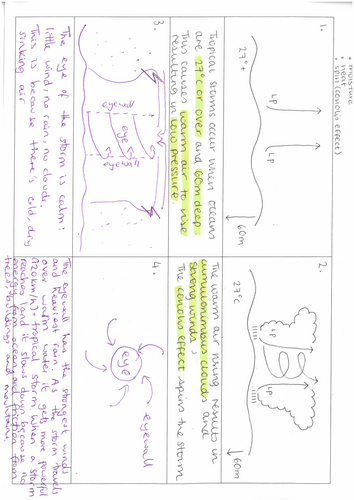 • moisture
• heat
• spin (coriolis effect)
1.
27°+
LP
LP
60m
Tropical storms occur when oceans
are 27°C or over and 60m deep.
This causes warm air to rise
resulting in low pressure.
2.
27°C
LP
LP
60m
The warm air rising results in
cumulonimbus clouds and
strong winds.
The coriolis effect spins the storm
3.
eyewall
eye
eyewall
The eye of the storm is calm:
little wind, no rain, no clouds.
This is because there's cold, dry
sinking air
4.
eye
eyewall
The eyewall has the strongest winds
and heaviest rain. As the storm travels
over warm water it gets more powerful
(120km/h) = tropical storm. When a storm
reaches land it slows down because no
energy from ocean and friction from
trees, buildings and mountains.